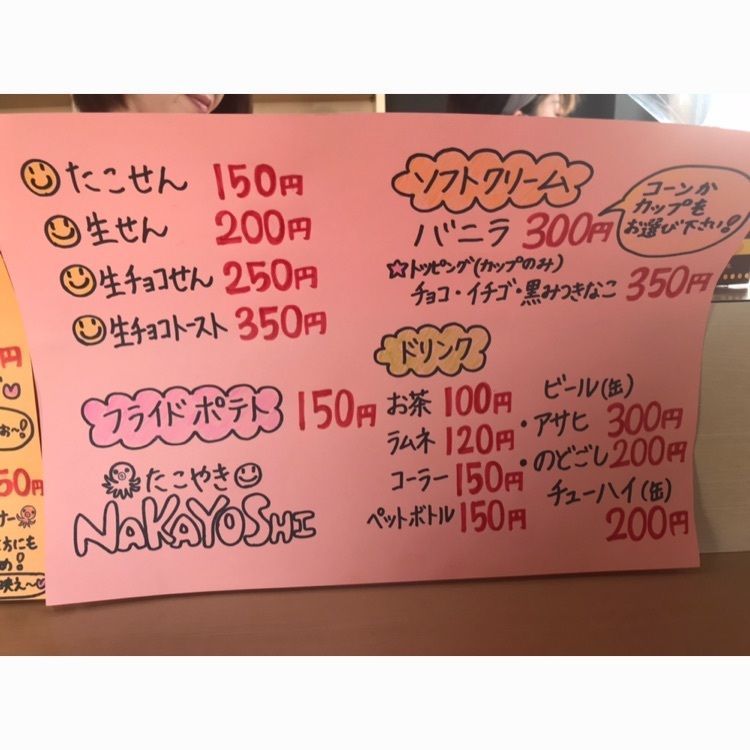 たこせん 150円
生せん 200円
生チョコせん 250円
生チョコトースト 350円
フライドポテト 150円
たこやき
NAKAYOSHI
ソフトクリーム
バニラ 300円
コーンか
カップも
お選び下さい!
☆トッピング(カップのみ)
チョコ・イチゴ・黒みつきなこ 350円
ドリンク
お茶 100円
ラムネ 120円
コーラー 150円
ペットボトル 150円
ビール(缶)
・アサヒ 300円
・のどごし 200円
チューハイ(缶)
200円
円
50円
方にも
め!
映え〜